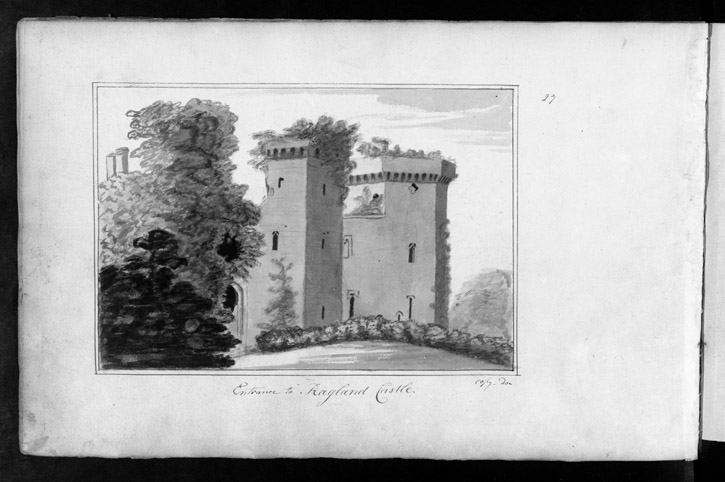 27
Entrance to Ragland Castle.